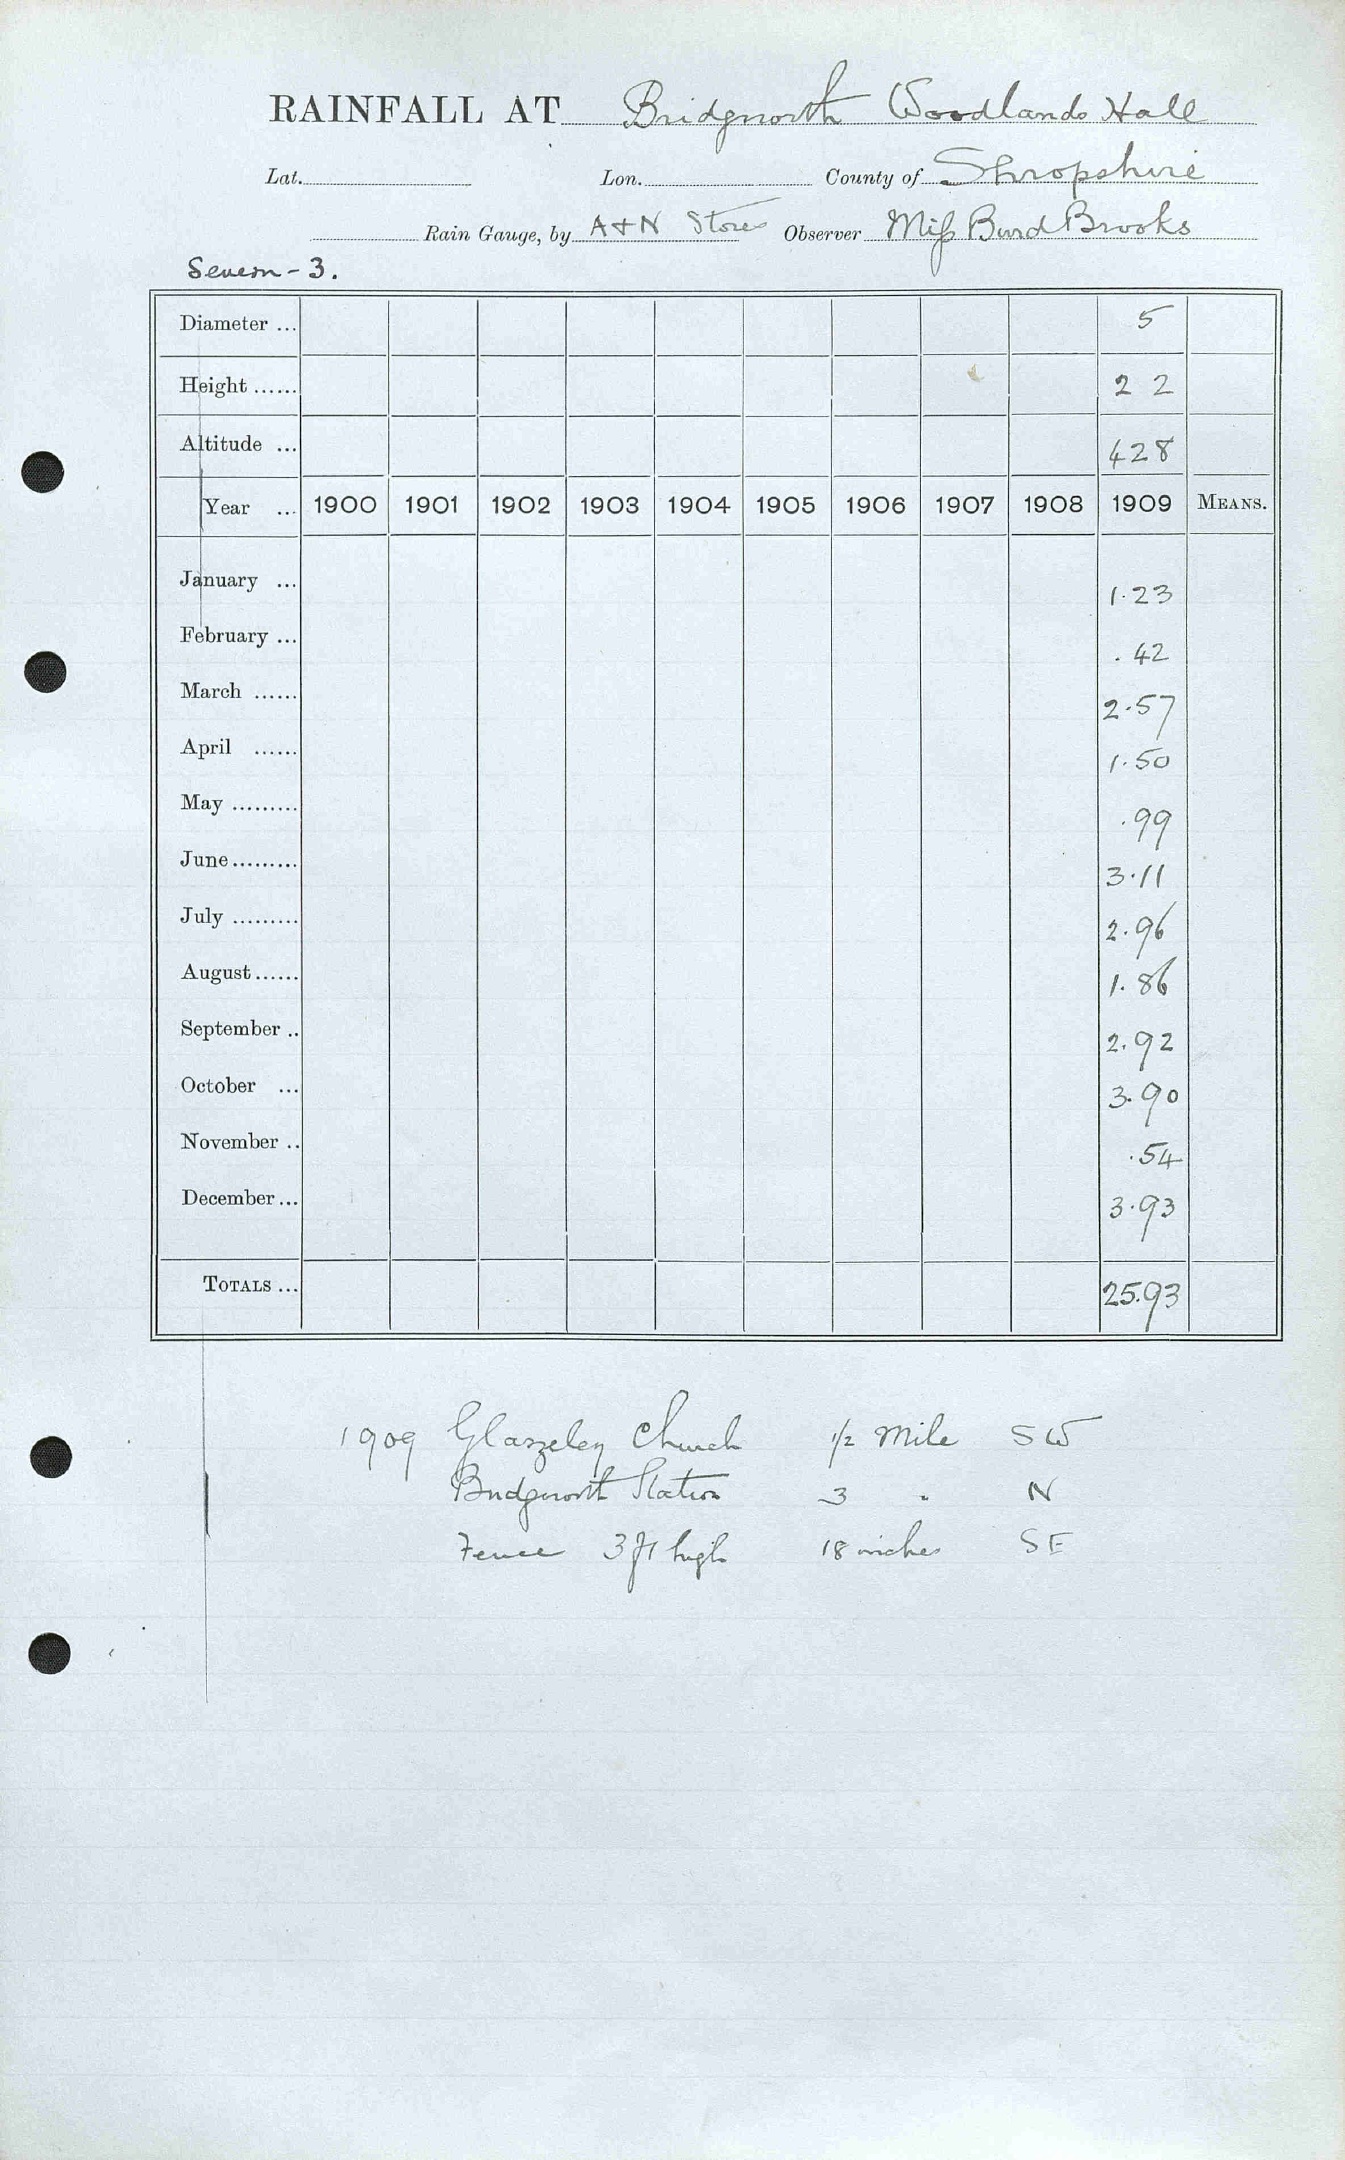 RAINFALL AT Bridgnorth Woodlands Hall
Lat. Lon. County of Shropshire
Rain Gauge, by A+N Stores Observer Miss Burd Brooks
Severn - 3.
Diameter ... 5
Height ...... 2 2
Altitude ... 428
Year ... 1900 1901 1902 1903 1904 1905 1906 1907 1908 1909 MEANS.
January ... 1.23
February ... .42
March ...... 2.57
April ...... 1.50
May ......... .99
June ......... 3.11
July ......... 2.96
August ...... 1.86
September .. 2.92
October ... 3.90
November .. .54
December ... 3.93
TOTALS ... 25.93
1909 Glazeley Church 1/2 mile SW
Bridgnorth Station 3 " N
Fence 3 ft high 18 inches SE